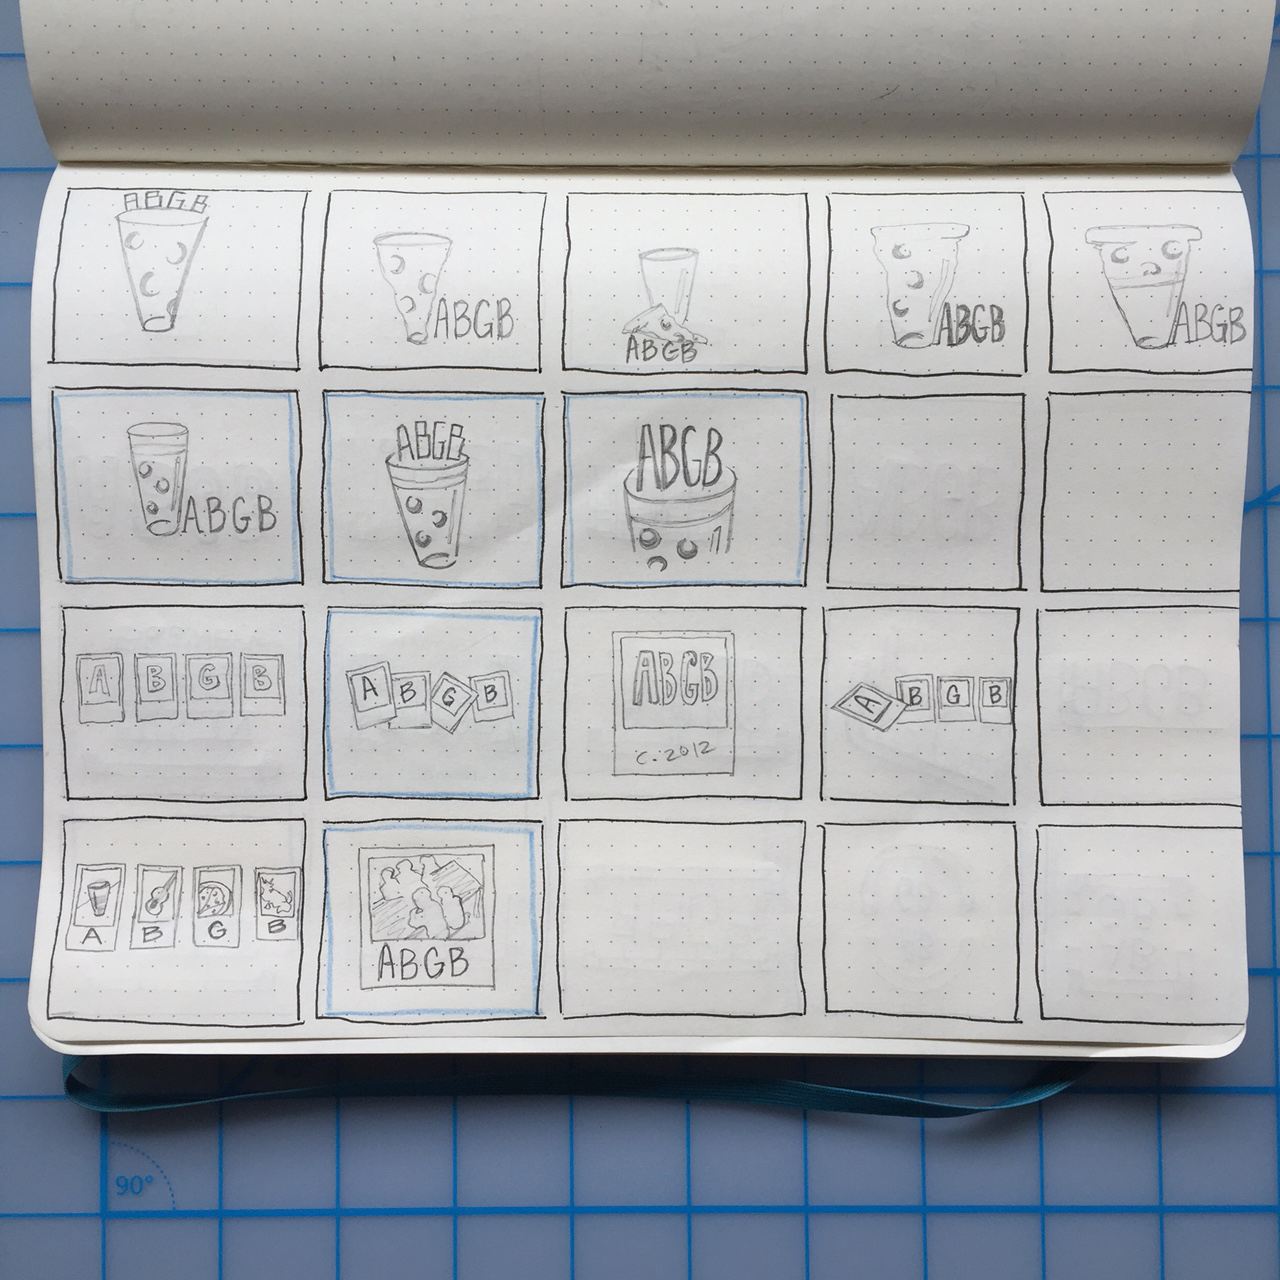 ABGB
ABGB
ABGB
ABGB
ABGB
ABGB
ABGB
ABGB
A B G B
A B G B
ABGB
C. 2012
A B G B
A B G B
ABGB
90°